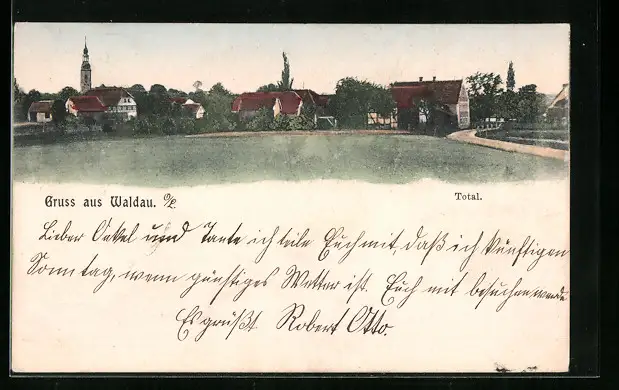 Gruss aus Waldau. O/L.
Total.
Lieber Onkel und Tante ich teile Euch mit, daß ich künftigen
Sonntag, wenn günstiges Wetter ist. Euch mit besuchen werde
Es grüßt. Robert Otto.